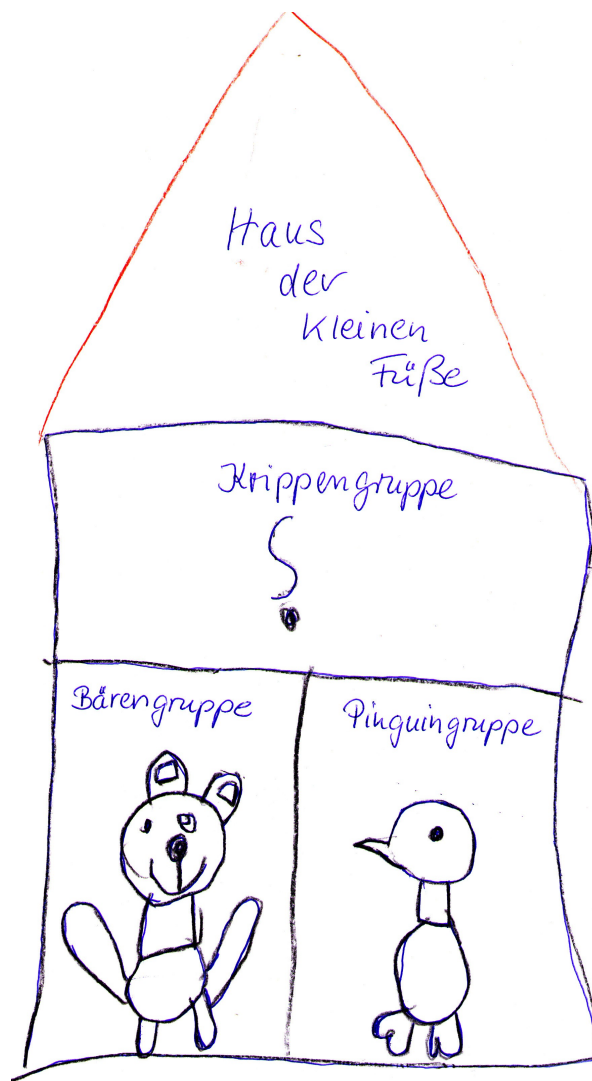 Haus
der
kleinen
Füße
Krippengruppe
?
Bärengruppe
Pinguingruppe